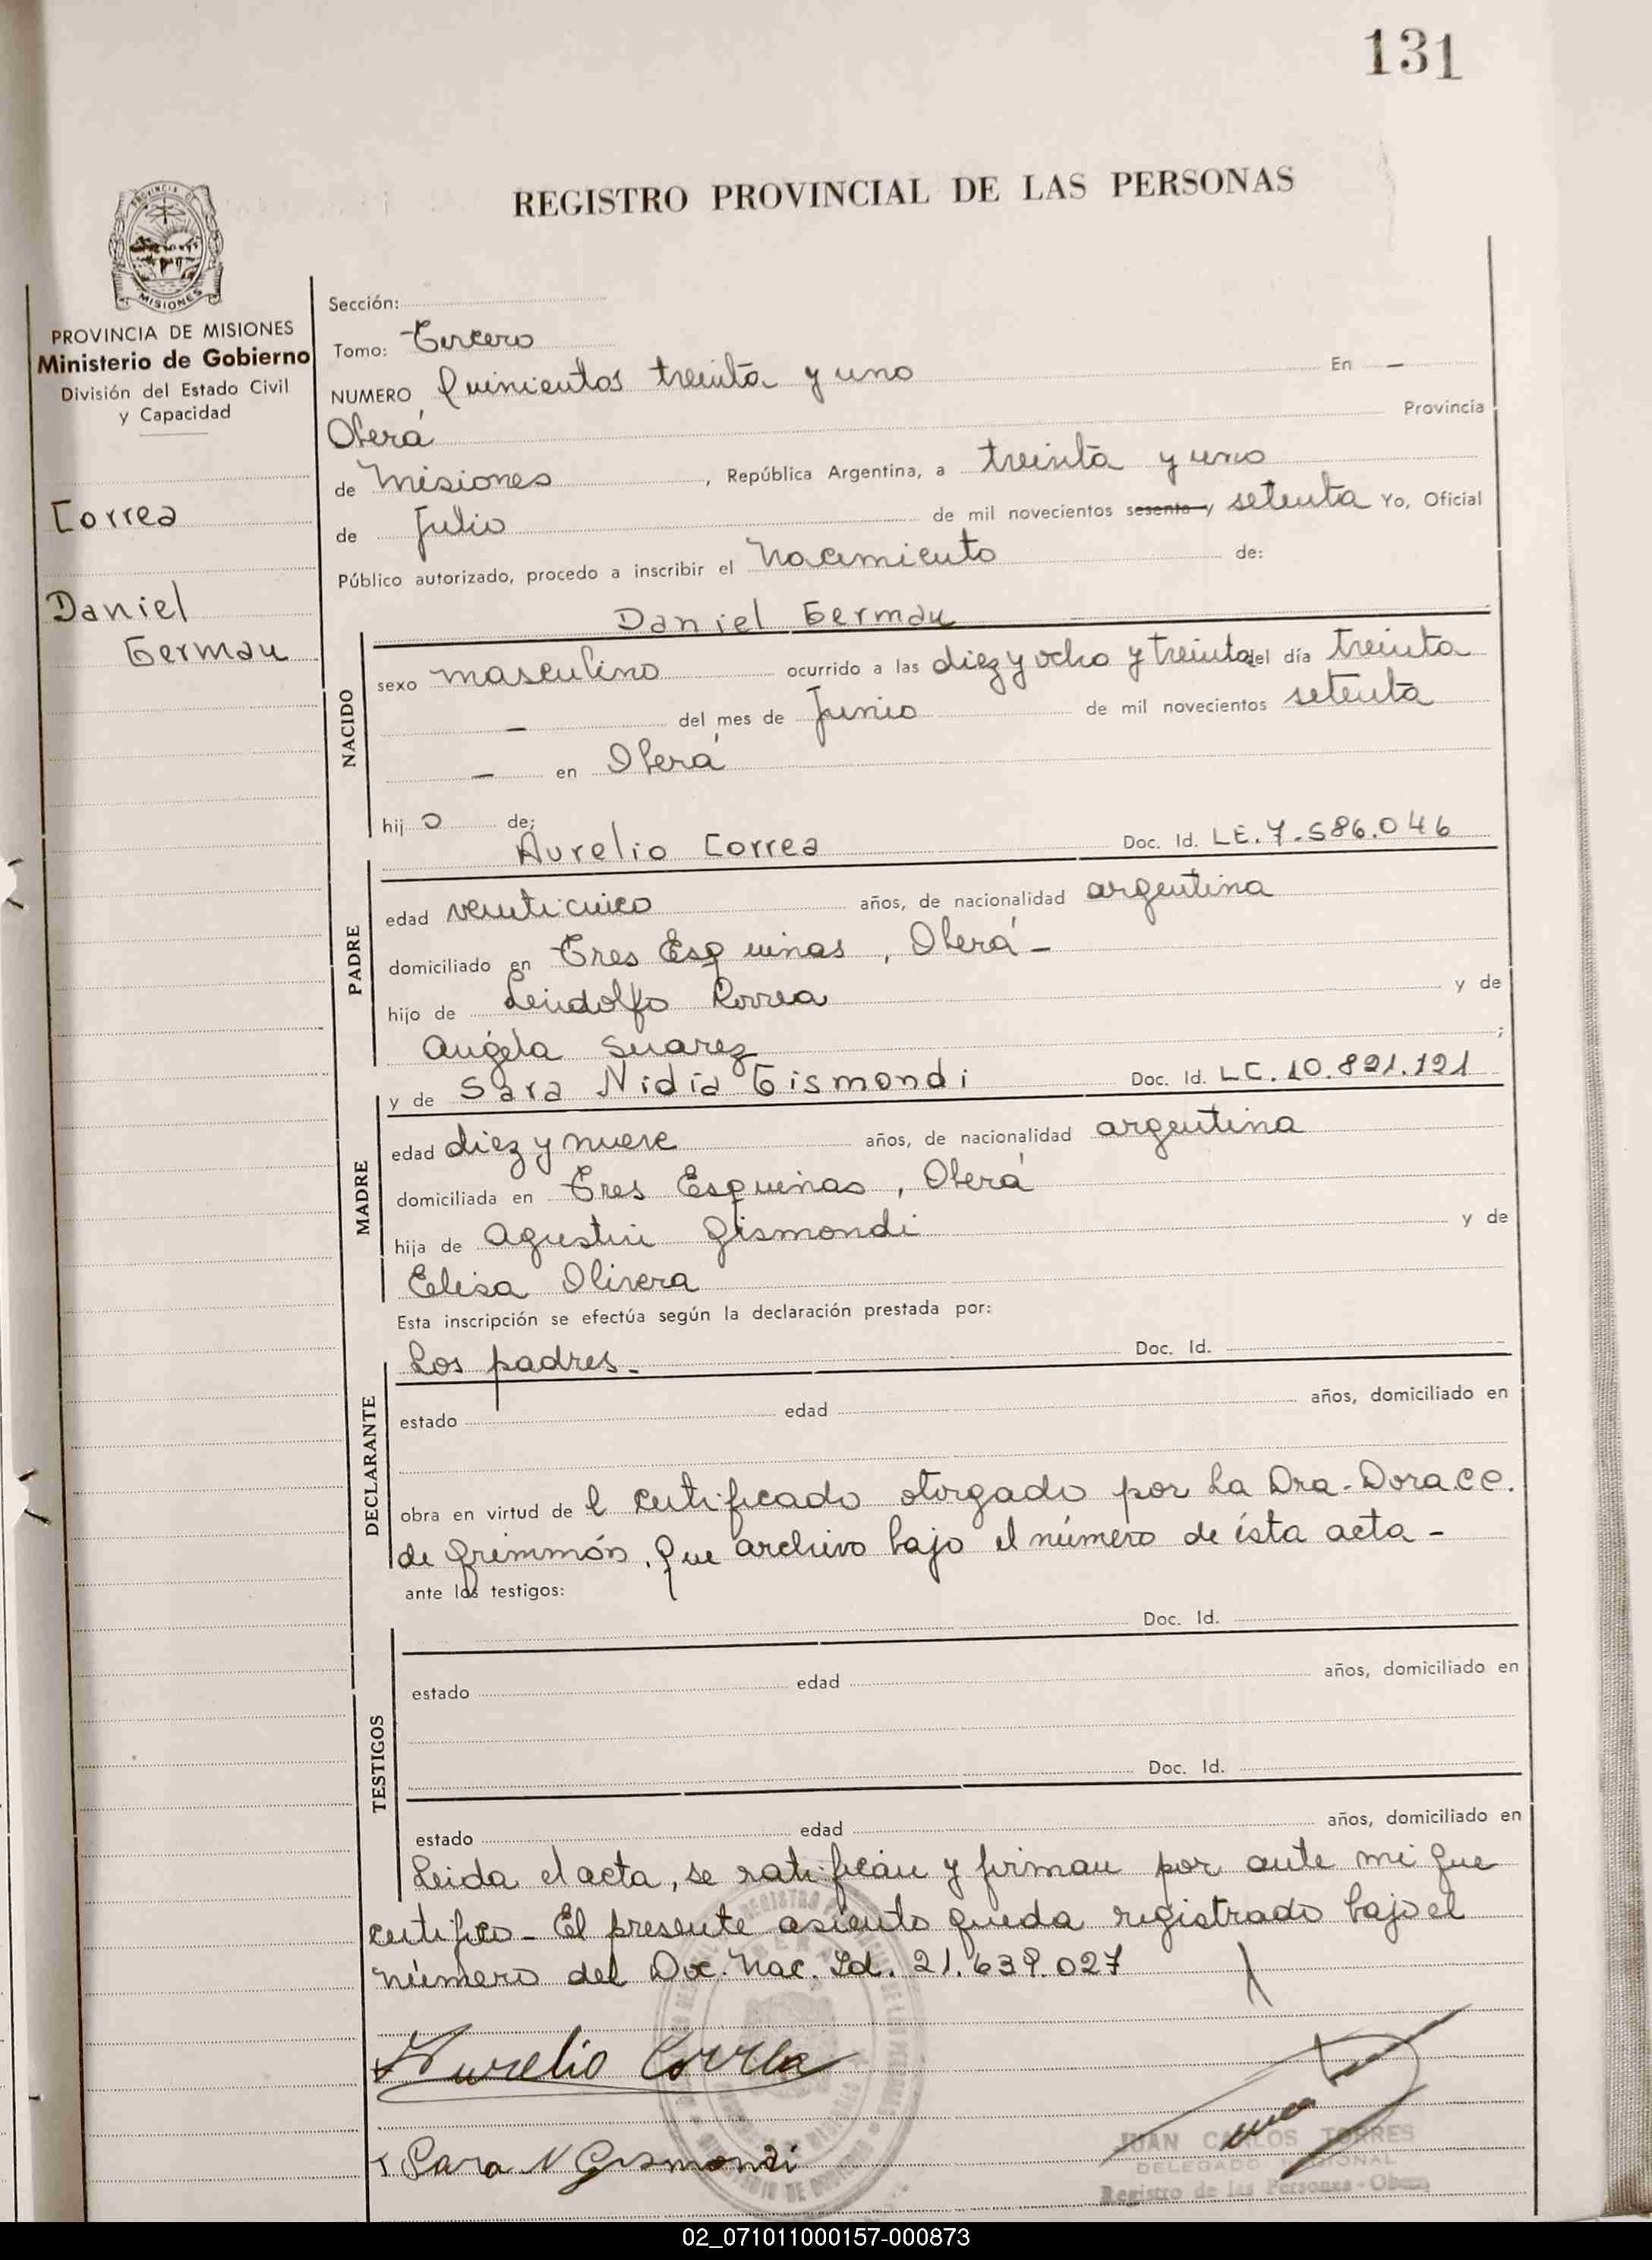 131
REGISTRO PROVINCIAL DE LAS PERSONAS
PROVINCIA DE MISIONES
Ministerio de Gobierno
División del Estado Civil
y Capacidad
Correa
Daniel
German
Sección:
Tomo: Tercero
NUMERO Quinientos treinta y uno En —
Oberá Provincia
de Misiones , República Argentina, a treinta y uno
de Julio de mil novecientos sesenta y setenta Yo, Oficial
Público autorizado, procedo a inscribir el Nacimiento de:
Daniel German
NACIDO
sexo masculino ocurrido a las diez y ocho y treinta del día treinta
— del mes de Junio de mil novecientos setenta
— en Oberá
hij o de;
Aurelio Correa Doc. Id. LE. 7.586.046
PADRE
edad veinticinco años, de nacionalidad argentina
domiciliado en Tres Esquinas, Oberá —
hijo de Lindolfo Correa y de
Angela Suarez ;
y de Sara Nidia Gismondi Doc. Id. LC. 10.821.121
MADRE
edad diez y nueve años, de nacionalidad argentina
domiciliada en Tres Esquinas, Oberá
hija de Agustin Gismondi y de
Elisa Olivera
Esta inscripción se efectúa según la declaración prestada por:
Los padres. Doc. Id.
DECLARANTE
estado edad años, domiciliado en
obra en virtud de l certificado otorgado por la Dra. Dora C C.
de Grimmón. Que archivo bajo el número de ésta acta -
ante los testigos:
Doc. Id.
TESTIGOS
estado edad años, domiciliado en
Doc. Id.
estado edad años, domiciliado en
Leida el acta, se ratifican y firman por ante mi que
certifico - El presente asiento queda registrado bajo el
número del Doc. Nac. Id. 21.639.027
Aurelio Correa
Sara N Gismondi
JUAN CARLOS TORRES
DELEGADO REGIONAL
Registro de las Personas - Oberá
02_071011000157-000873